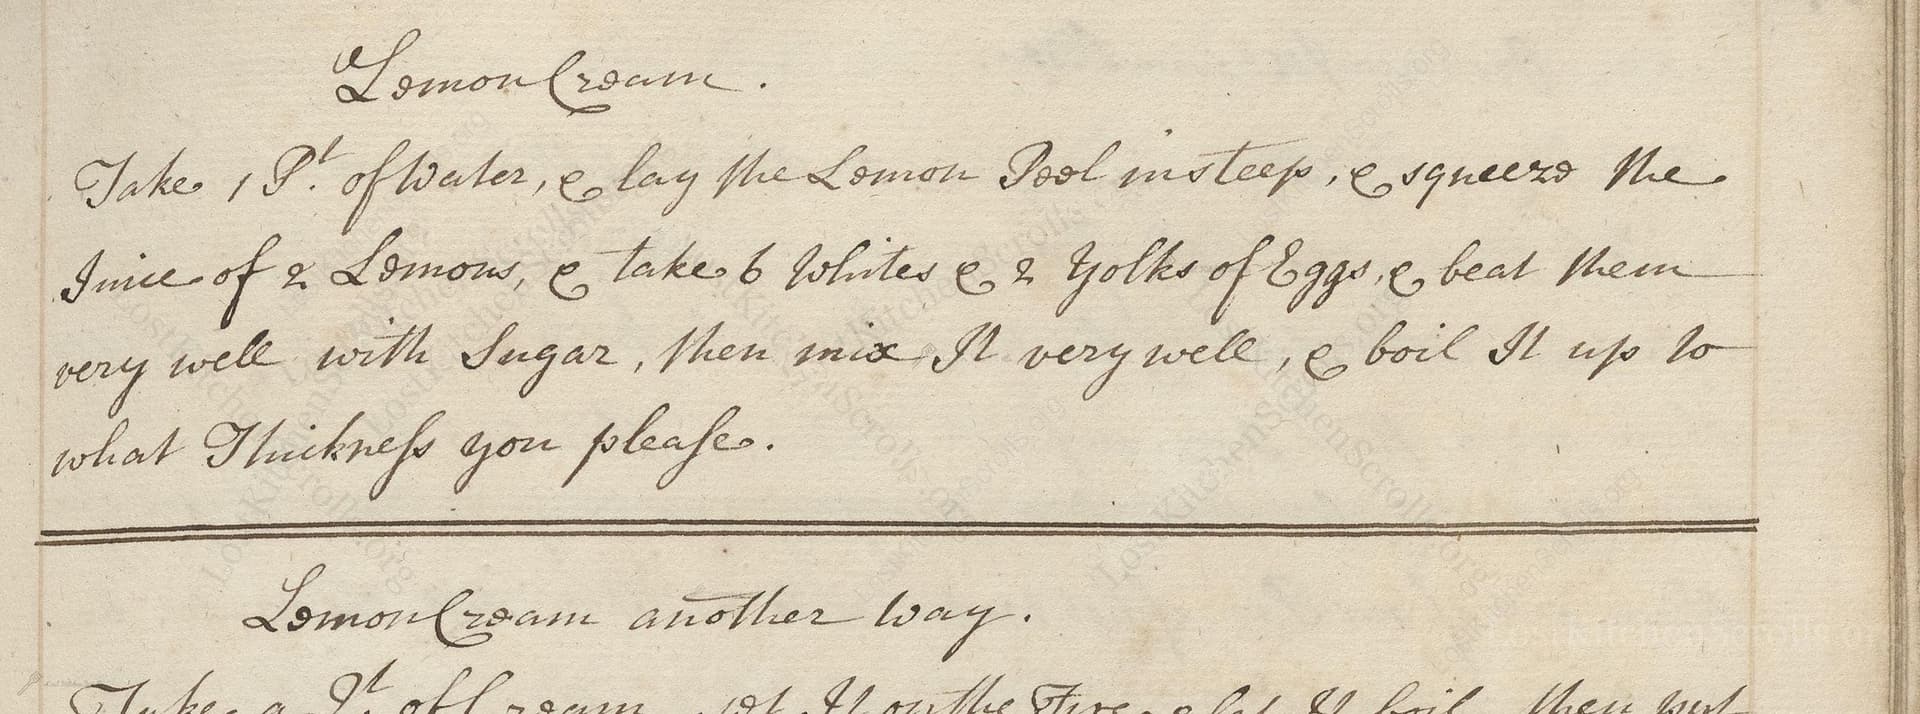 Lemon Cream.
Take 1 Pt. of Water, & lay the Lemon Peel in steep, & squeeze the
Juice of 2 Lemons, & take 6 Whites & 2 Yolks of Eggs, & beat them
very well with Sugar, then mix It very well, & boil It up to
what Thickneſs you pleaſe.
Lemon Cream another way.
Take a Pt. of Cream, set It on the Fire, & let It boil, then put